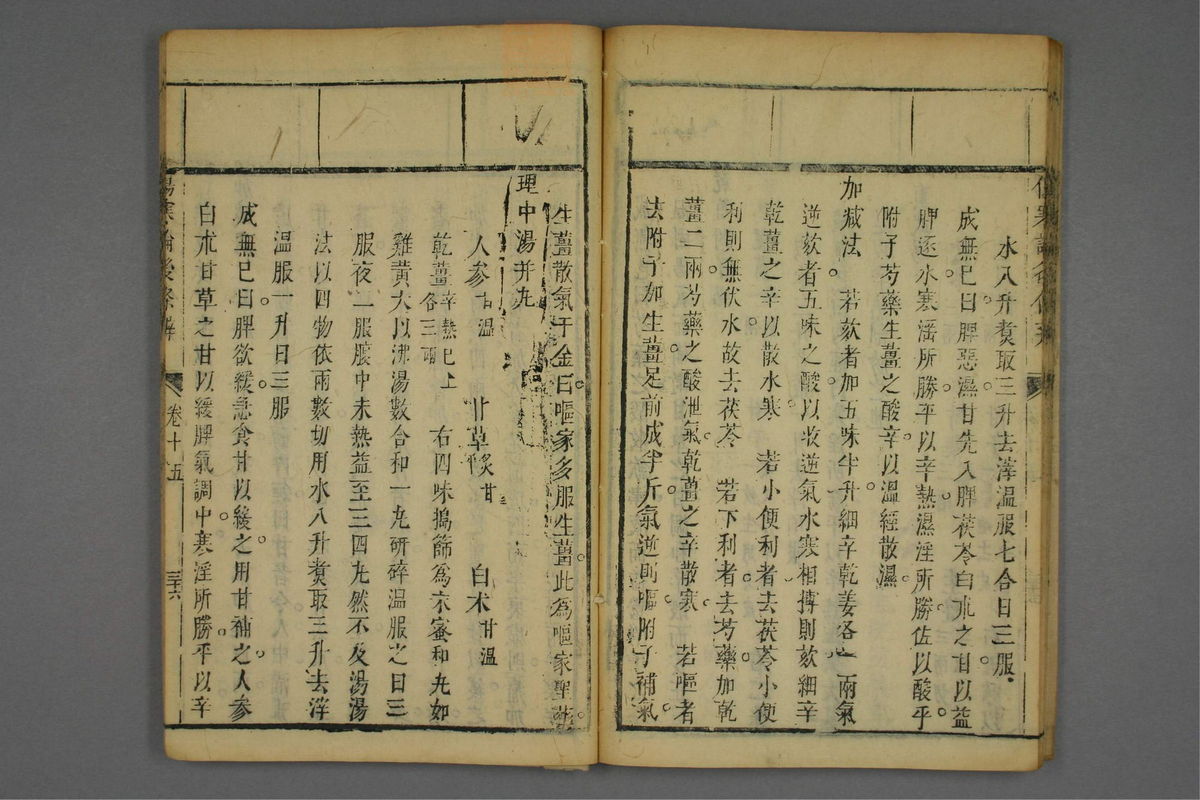 水八升煑取三升去滓溫服七合日三服
成無巳曰脾惡濕甘先入脾茯苓白朮之甘以益
脾逐水寒濕所勝平以辛熱濕淫所勝佐以酸平
附子芍藥生薑之酸辛以溫經散濕
加减法 若欬者加五味半升細辛乾姜各一兩氣
逆欬者五味之酸以收逆氣水寒相搏則欬細辛
乾薑之辛以散水寒 若小便利者去茯苓小便
利則無伏水故去茯苓 若下利者去芍藥加乾
薑二兩芍藥之酸泄氣乾薑之辛散寒 若嘔者
去附子加生薑足前成半斤氣逆則嘔附子補氣
生薑散氣千金曰嘔家多服生薑此為嘔家聖藥
理中湯并丸
人參甘溫 甘草炙甘 白朮甘溫
乾薑辛熱巳上各三兩 右四味搗篩爲末蜜和丸如
雞黃大以沸湯數合和一丸研碎溫服之日三
服夜二服腹中未熱益至三四丸然不及湯湯
法以四物依兩數切用水八升煑取三升去滓
溫服一升日三服
成無巳曰脾欲緩急食甘以緩之用甘補之人參
白朮甘草之甘以緩脾氣調中寒淫所勝平以辛
傷寒論後條辨 卷十五 三十六